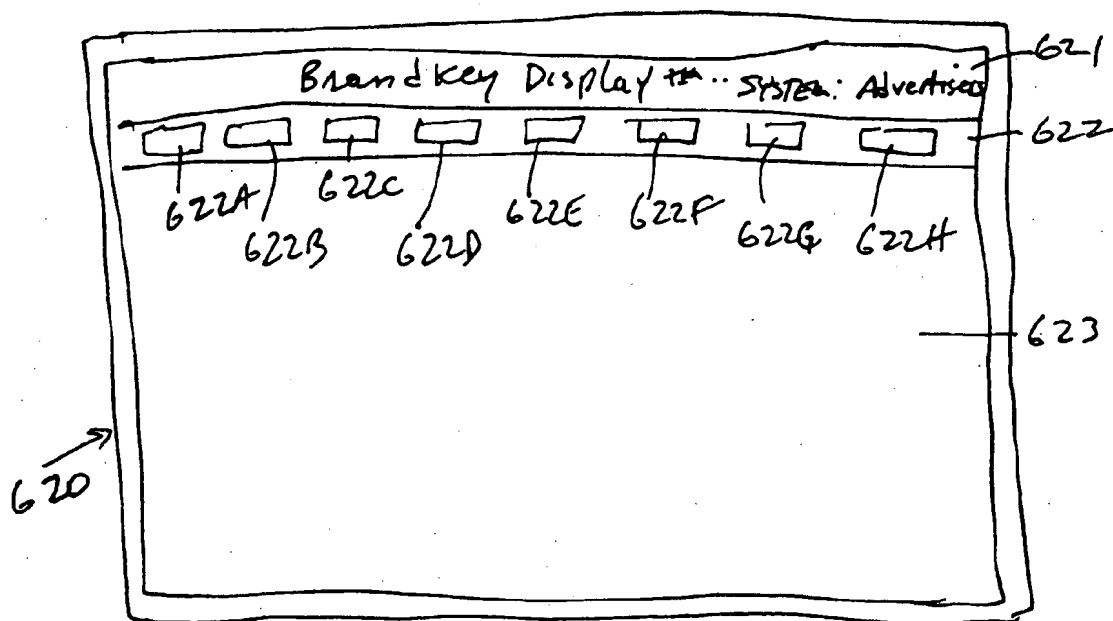 621
Brand Key Display ™.. SYSTEM: Advertisers
622
622A 622B 622C 622D 622E 622F 622G 622H
623
620